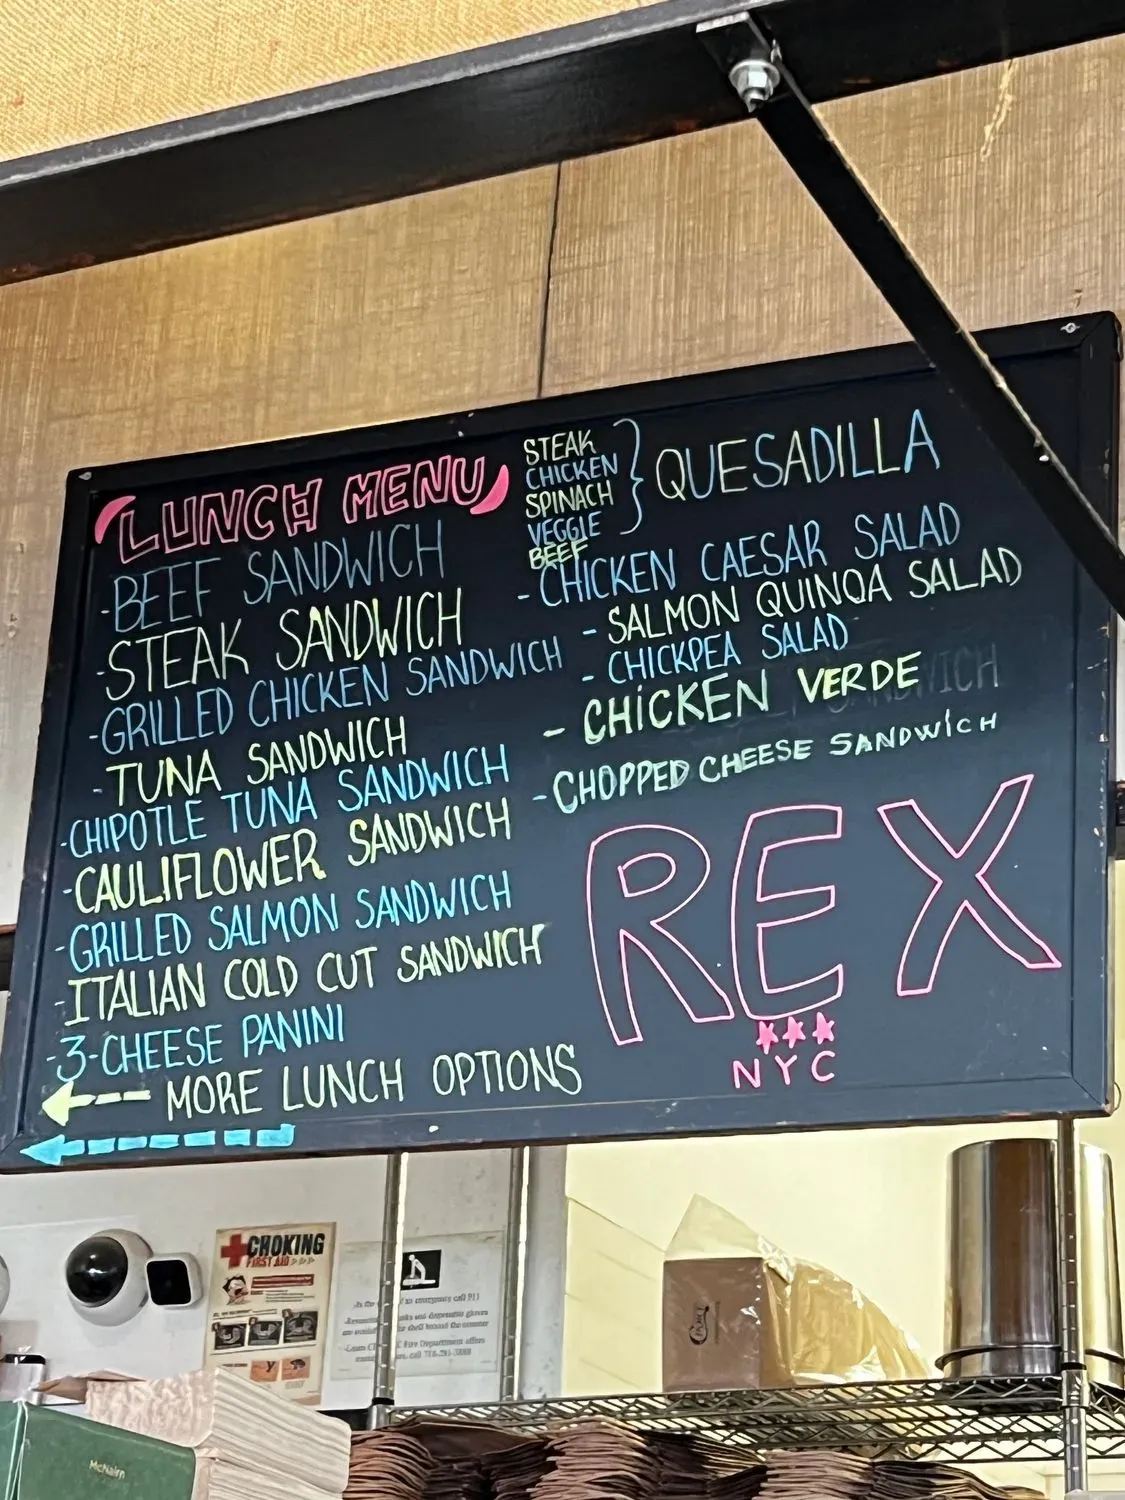 LUNCH MENU
-BEEF SANDWICH
-STEAK SANDWICH
-GRILLED CHICKEN SANDWICH
-TUNA SANDWICH
-CHIPOTLE TUNA SANDWICH
-CAULIFLOWER SANDWICH
-GRILLED SALMON SANDWICH
-ITALIAN COLD CUT SANDWICH
-3-CHEESE PANINI
MORE LUNCH OPTIONS
STEAK
CHICKEN
SPINACH
VEGGIE
BEEF
QUESADILLA
-CHICKEN CAESAR SALAD
-SALMON QUINOA SALAD
-CHICKPEA SALAD
-CHICKEN VERDE
-CHOPPED CHEESE SANDWICH
REX
NYC
CHOKING
FIRST AID
emergency call 911
Fire Department offers
McNairn